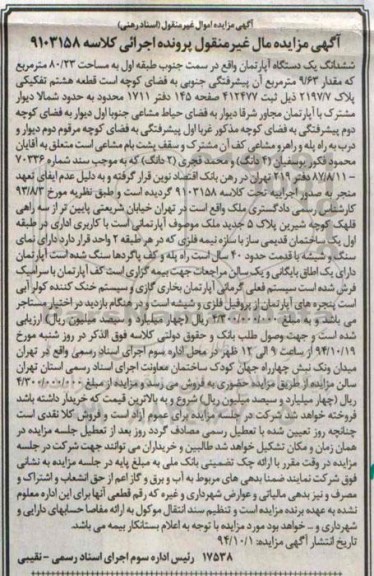 آگهی مزایده اموال غیرمنقول (اسناد رهنی)
آگهی مزایده مال غیرمنقول پرونده اجرائی کلاسه ۹۱۰۳۱۵۸
ششدانگ یک دستگاه آپارتمان واقع در سمت جنوب طبقه اول به مساحت ۸۰/۲۳ مترمربع
که مقدار ۹/۶۳ مترمربع آن پیشرفتگی جنوبی به فضای کوچه است قطعه هشتم تفکیکی
پلاک ۲۱۹۷/۷ ذیل ثبت ۴۱۲۴۷۷ صفحه ۱۴۵ دفتر ۱۷۱۱ محدود به حدود شمالا دیوار
مشترک با آپارتمان مجاور شرقا دیوار به فضای حیاط مشاعی جنوبا اول دیوار به فضای کوچه
دوم پیشرفتگی به فضای کوچه مذکور غربا اول پیشرفتگی به فضای کوچه مرقوم دوم دیوار و
درب به راه پله و راهرو مشاعی کف آن مشترک و سقف پشت بام مشاعی است متعلق به آقایان
محمود فکور یوسفیان (۴ دانگ) و محمد فجری (۲ دانگ) که به موجب سند شماره ۷۰۳۳۶
– ۸۷/۸/۱۱ دفتر ۲۱۹ تهران در رهن بانک اقتصاد نوین قرار گرفته و به دلیل عدم ایفای تعهد
منجر به صدور اجرائیه تحت کلاسه ۹۱۰۳۱۵۸ گردیده است و طبق نظریه مورخ ۹۳/۸/۳
کارشناس رسمی دادگستری ملک واقع است در تهران خیابان شریعتی پایین تر از سه راهی
قلهک کوچه شیرین پلاک ۵ جدید ملک موصوف آپارتمانی است با کاربری اداری در طبقه
اول یک ساختمان قدیمی ساز با سازه نیمه فلزی که در هر طبقه ۲ واحد قرار دارد دارای نمای
سنگ و شیشه با قدمت حدود ۴۰ سال است راه پله و کف پاگردها سنگ شده است آپارتمان
دارای یک اطاق بایگانی و یک سالن مراجعات جهت بیمه گزاری است کف آپارتمان با سرامیک
فرش شده است سیستم فعلی گرمائی آپارتمان بخاری گازی و سیستم خنک کننده کولر آبی
است پنجره های آپارتمان از پروفیل فلزی و شیشه است و در هنگام بازدید در اختیار مستاجر
می باشد و به مبلغ ۴/۳۰۰/۰۰۰/۰۰۰ ریال (چهار میلیارد و سیصد میلیون ریال) ارزیابی
شده است و جهت وصول طلب بانک و حقوق دولتی کلاسه فوق الذکر در روز شنبه مورخ
۹۴/۱۰/۱۹ از ساعت ۹ الی ۱۲ ظهر در محل اداره سوم اجرای اسناد رسمی واقع در تهران
میدان ونک نبش چهارراه جهان کودک ساختمان معاونت اجرای اسناد رسمی استان تهران
سالن مزایده از طریق مزایده حضوری به فروش می رسد و مزایده از مبلغ ۴/۳۰۰/۰۰۰/۰۰۰
ریال (چهار میلیارد و سیصد میلیون ریال) شروع و به بالاترین قیمت که خریدار داشته باشد
فروخته خواهد شد شرکت در جلسه مزایده برای عموم آزاد است و فروش کلا نقدی است
چنانچه روز تعیین شده با تعطیل رسمی مصادف گردد روز بعد از تعطیل جلسه مزایده در
همان زمان و مکان تشکیل خواهد شد طالبین و خریداران می توانند جهت شرکت در جلسه
مزایده در وقت مقرر با ارائه چک تضمینی بانک ملی به مبلغ پایه در جلسه مزایده به نشانی
فوق شرکت نمایند ضمنا بدهی های مربوط به آب و برق و گاز اعم از حق انشعاب و اشتراک و
مصرف و نیز بدهی مالیاتی و عوارض شهرداری و غیره که رقم قطعی آنها برای این اداره معلوم
نشده به عهده برنده مزایده است و تنظیم سند انتقال موکول به ارائه مفاصا حسابهای دارایی و
شهرداری و ... خواهد بود مورد مزایده با توجه به اعلام بستانکار بیمه می باشد.
تاریخ انتشار آگهی مزایده: ۹۴/۱۰/۱
۱۷۵۳۸ رئیس اداره سوم اجرای اسناد رسمی – نقیبی